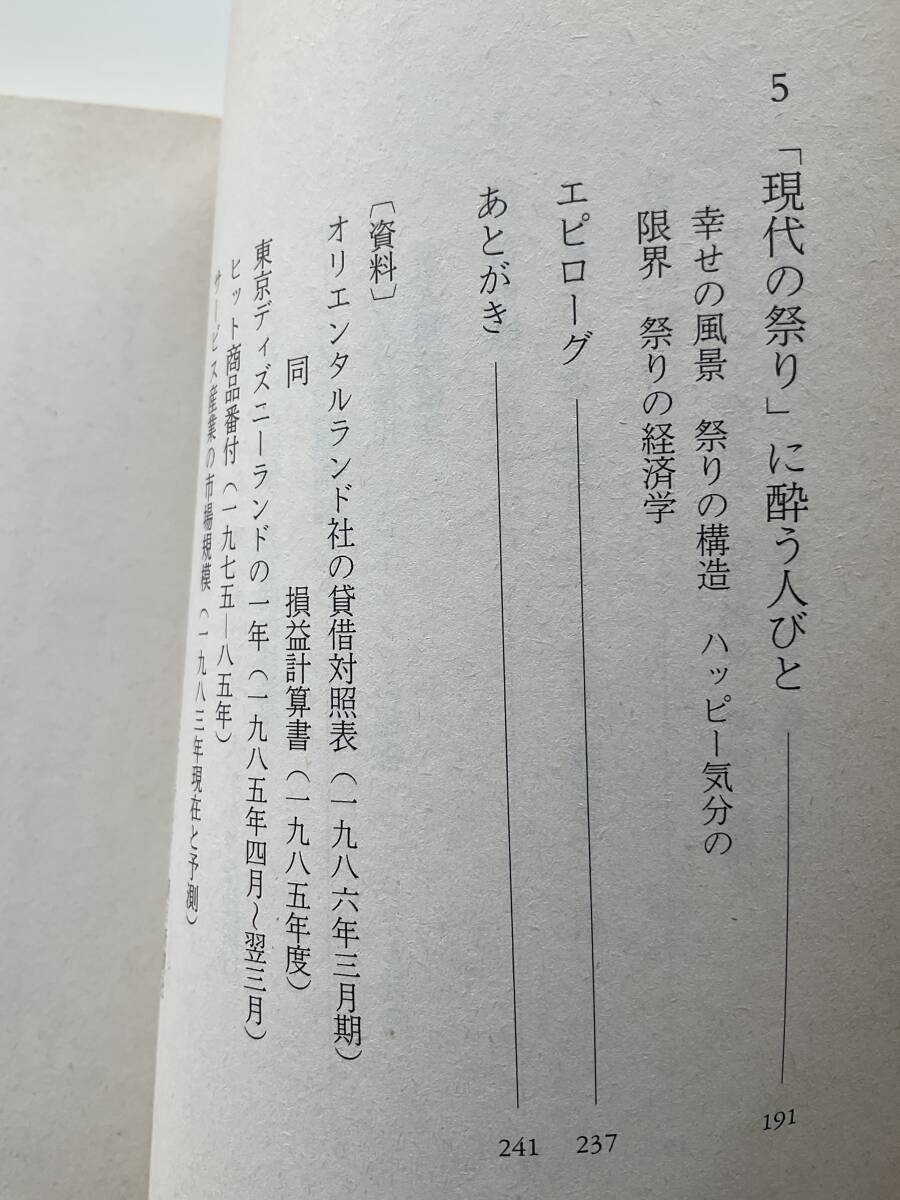 5 「現代の祭り」に酔う人びと 191
幸せの風景 祭りの構造 ハッピー気分の
限界 祭りの経済学
エピローグ 237
あとがき 241
〔資料〕
オリエンタルランド社の貸借対照表(一九八六年三月期)
同 損益計算書(一九八五年度)
東京ディズニーランドの一年(一九八五年四月〜翌三月)
ヒット商品番付(一九七五―八五年)
サービス産業の市場規模(一九八三年現在と予測)